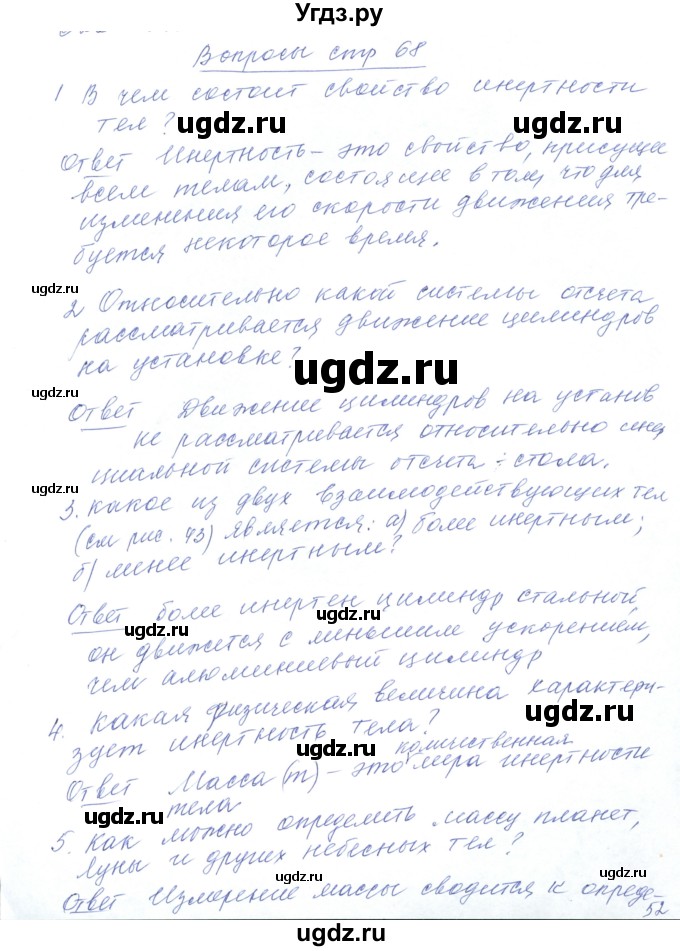 Угдз.ру
Вопросы стр 68
1 В чем состоит свойство инертности
тел?
ugdz.ru ugdz.ru
Ответ Инертность – это свойство, присущее
всем телам, состоящее в том, что для
изменения его скорости движения тре-
буется некоторое время.
ugdz.ru
2 Относительно какой системы отсчета
рассматривается движение цилиндров
на установке?
ugdz.ru
ugdz.ru
Ответ Движение цилиндров на установ
ке рассматривается относительно инер
циальной системы отсчета – стола.
ugdz.ru
3. Какое из двух взаимодействующих тел
(см рис. 43) является: а) более инертным;
б) менее инертным?
ugdz.ru
Ответ более инертен цилиндр стальной
он движется с меньшим ускорением,
чем алюминиевый цилиндр
ugdz.ru
4. Какая физическая величина характери-
зует инертность тела?
ugdz.ru
количественная
Ответ Масса (m) – это мера инертности
тела
ugdz.ru
5. Как можно определить массу планет,
Луны и других небесных тел?
ugdz.ru
Ответ Измерение массы сводится к опреде-
52
ugdz.ru